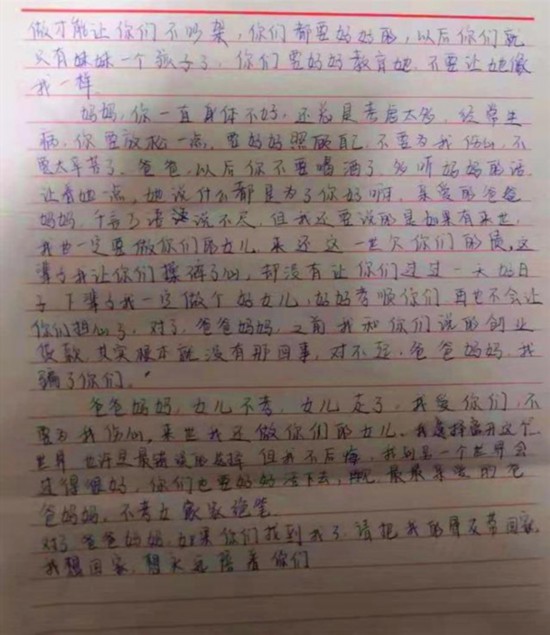 做才能让你们不吵架,你们都要好好的,以后你们就
只有妹妹一个孩子了,你们要好好教育她,不要让她像
我一样.
妈妈,你一直身体不好,还总是考虑太多,经常生
病,你要放松一点,要好好照顾自己,不要为我伤心,不
要太辛苦了,爸爸,以后你不要喝酒了,多听妈妈的话,
让着她点,她说什么都是为了你好啊,亲爱的爸爸
妈妈,千言万语说不尽,但我还要说的是如果有来世,
我也一定要做你们的女儿,来还这一世欠你们的债,这
辈子我让你们操碎了心,却没有让你们过过一天好日
子,下辈子我一定做个好女儿,好好孝顺你们,再也不会让
你们担心了,对了,爸爸妈妈,之前我和你们说的创业
贷款,其实根本就没有那回事,对不起,爸爸妈妈,我
骗了你们.
爸爸妈妈,女儿不孝,女儿走了,我爱你们,不
要为我伤心,来世我还做你们的女儿,我选择离开这个
世界,也许是最错误的选择,但我不后悔,我到另一个世界会
过得很好,你们也要好好活下去,最最亲爱的爸
爸妈妈,不孝女 绝笔
对了,爸爸妈妈,如果你们找到我了,请把我的骨灰带回家,
我想回家,想永远陪着你们